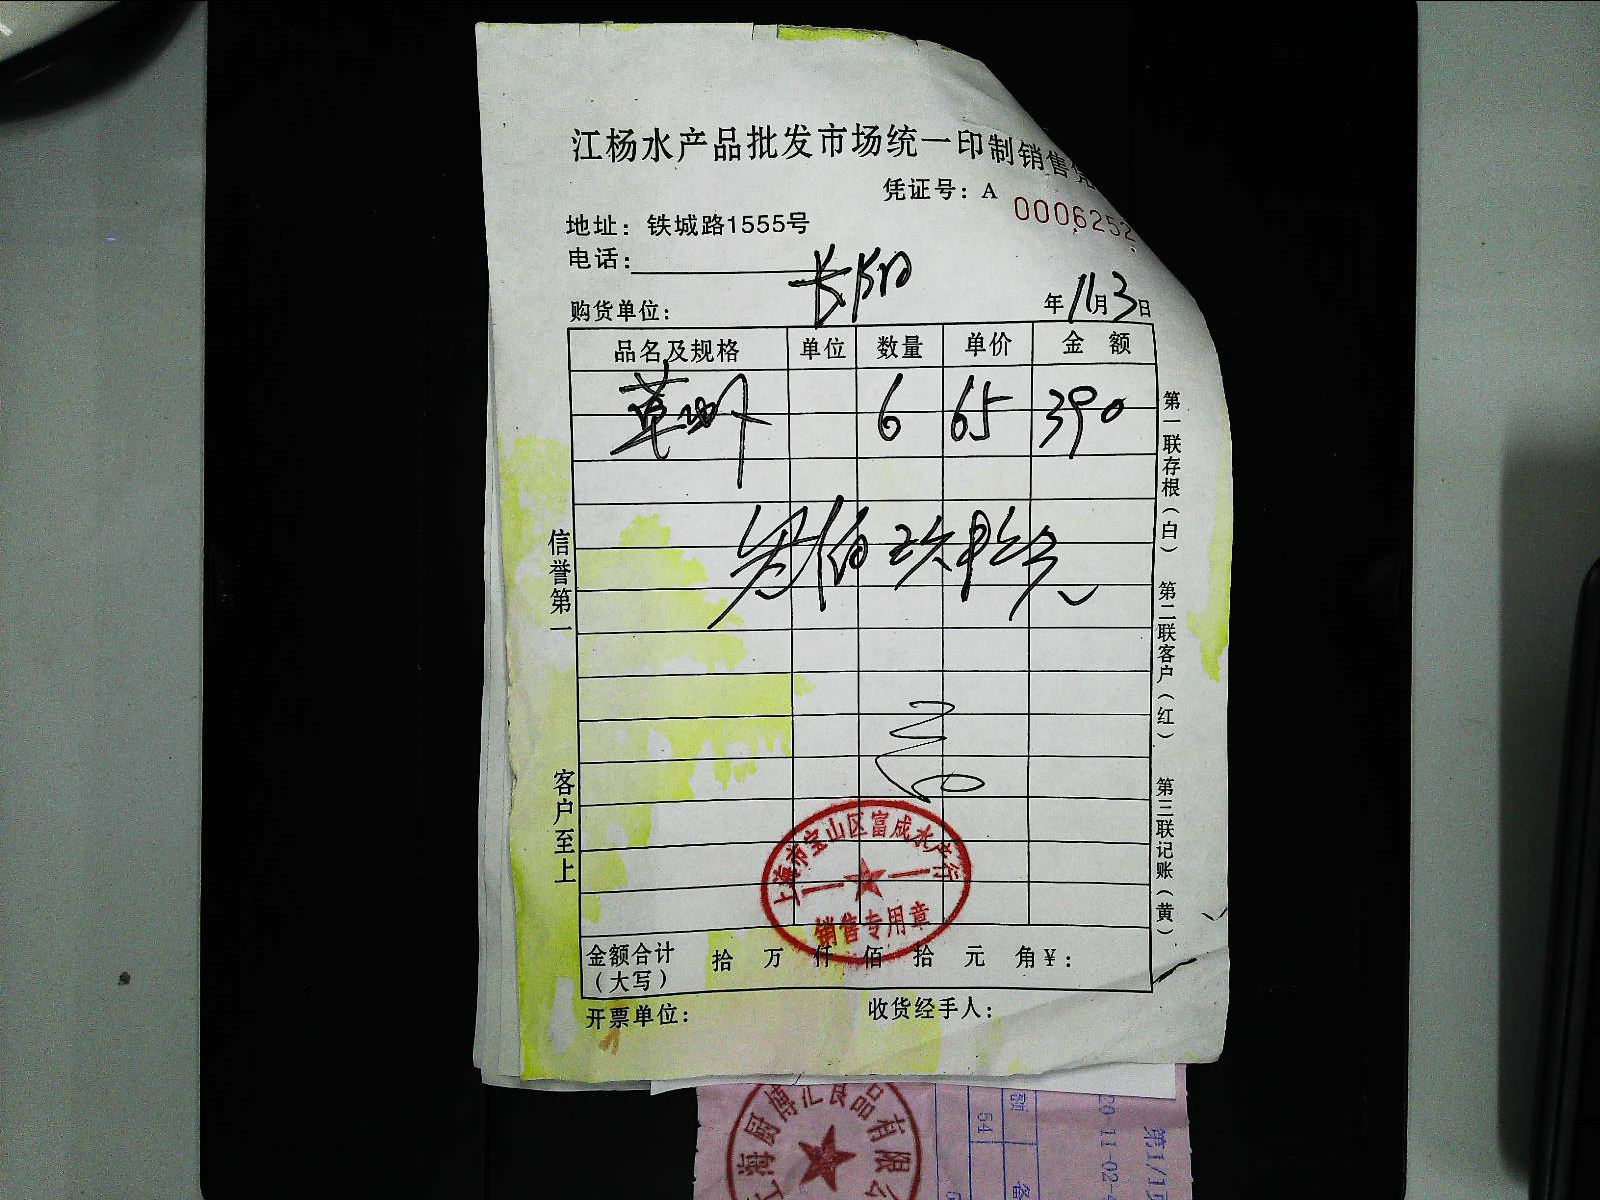 江杨水产品批发市场统一印制销售凭
凭证号：A 0006252
地址：铁城路1555号
电话：
购货单位：长阳
年11月3日
品名及规格 单位 数量 单价 金额
草虾 6 65 390
叁佰玖拾元
信誉第一
客户至上
第一联存根（白）
第二联客户（红）
第三联记账（黄）
上海市宝山区富成水产行
销售专用章
金额合计（大写） 拾 万 仟 佰 拾 元 角￥：
开票单位：
收货经手人：
上海厨博汇食品有限公
额
54
备
20 11-02-
第1/1页